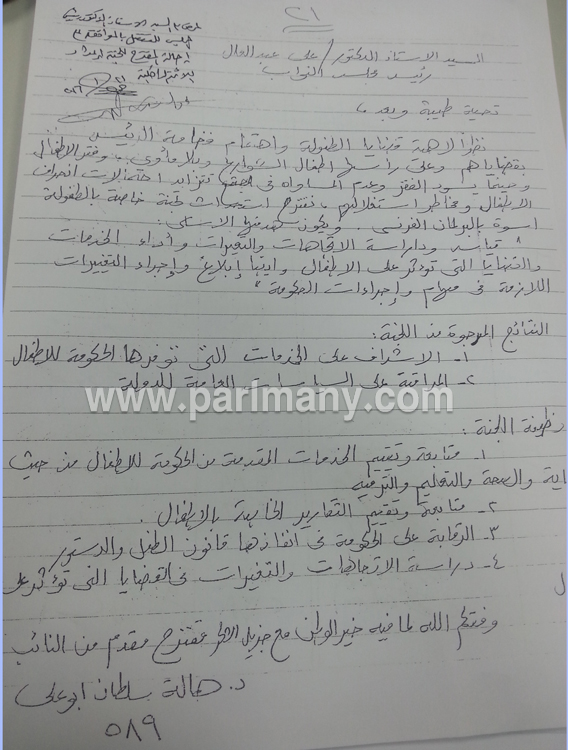 ٢١
السيد الاستاذ الدكتور / على عبد العال
رئيس مجلس النواب
تحية طيبة وبعد ،،
نظراً لأهمية قضايا الطفولة واهتمام فخامة الرئيس
بقضاياهم وعلى رأسها أطفال الشوارع وبلا مأوى
وحينما يسود الفقر وعدم المساواه فى تتزايد احتمالات انحراف
الاطفال ومخاطر استغلالهم ، نقترح استحداث لجنة خاصة بالطفولة
اسوة بالبرلمان الفرنسى . ويكون هدفها الاساسى :
ودراسة الاتجاهات والتغيرات وأداء الخدمات
والقضايا التى تؤثر على الاطفال وايضا إبلاغ وإجراء التغييرات
اللازمة فى مهام وإجراءات الحكومة "
النتائج المرجوة من اللجنة :
١- الاشراف على الخدمات التى توفرها الحكومة للاطفال
٢- المراقبة على السياسات العامة للدولة
www.parlmany.com
وظيفة اللجنة :
١- متابعة وتقييم الخدمات المقدمة من الحكومة للاطفال من حيث
اية والصحة والتعليم والترفيه
٢- متابعة وتقييم التقارير الخاصة بالاطفال .
٣- الرقابة على الحكومة فى انفاذها قانون الطفل والدستور
٤- دراسة الاتجاهات والتغيرات فى القضايا التى تؤثر على
ل
وفقكم الله لما فيه خير الوطن مع جزيل الشكر مقترح مقدم من النائب
د. هالة سلطان ابو على
٥٨٩